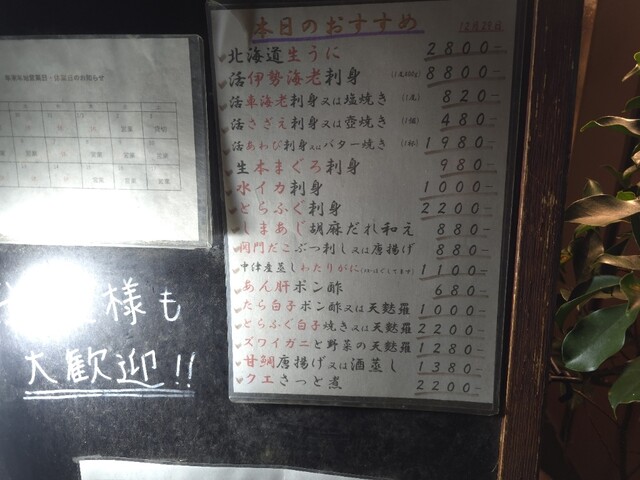 本日のおすすめ 12月29日
北海道生うに 2800-
活伊勢海老刺身 8800-
活車海老刺身又は塩焼き (1尾) 820-
活さざえ刺身又は壺焼き (1個) 480-
活あわび刺身又はバター焼き 1980-
生本まぐろ刺身 980-
水イカ刺身 1000-
とらふぐ刺身 2200-
しまあじ胡麻だれ和え 880-
関門だこぶつ刺し又は唐揚げ 880-
中津産蒸しわたりがに 1100-
あん肝ポン酢 680-
たら白子ポン酢又は天麩羅 1000-
とらふぐ白子焼き又は天麩羅 2200-
ズワイガニと野菜の天麩羅 1280-
甘鯛唐揚げ又は酒蒸し 1380-
クエさっと煮 2200-
年末年始営業日・休業日のお知らせ
様も
大歓迎!!